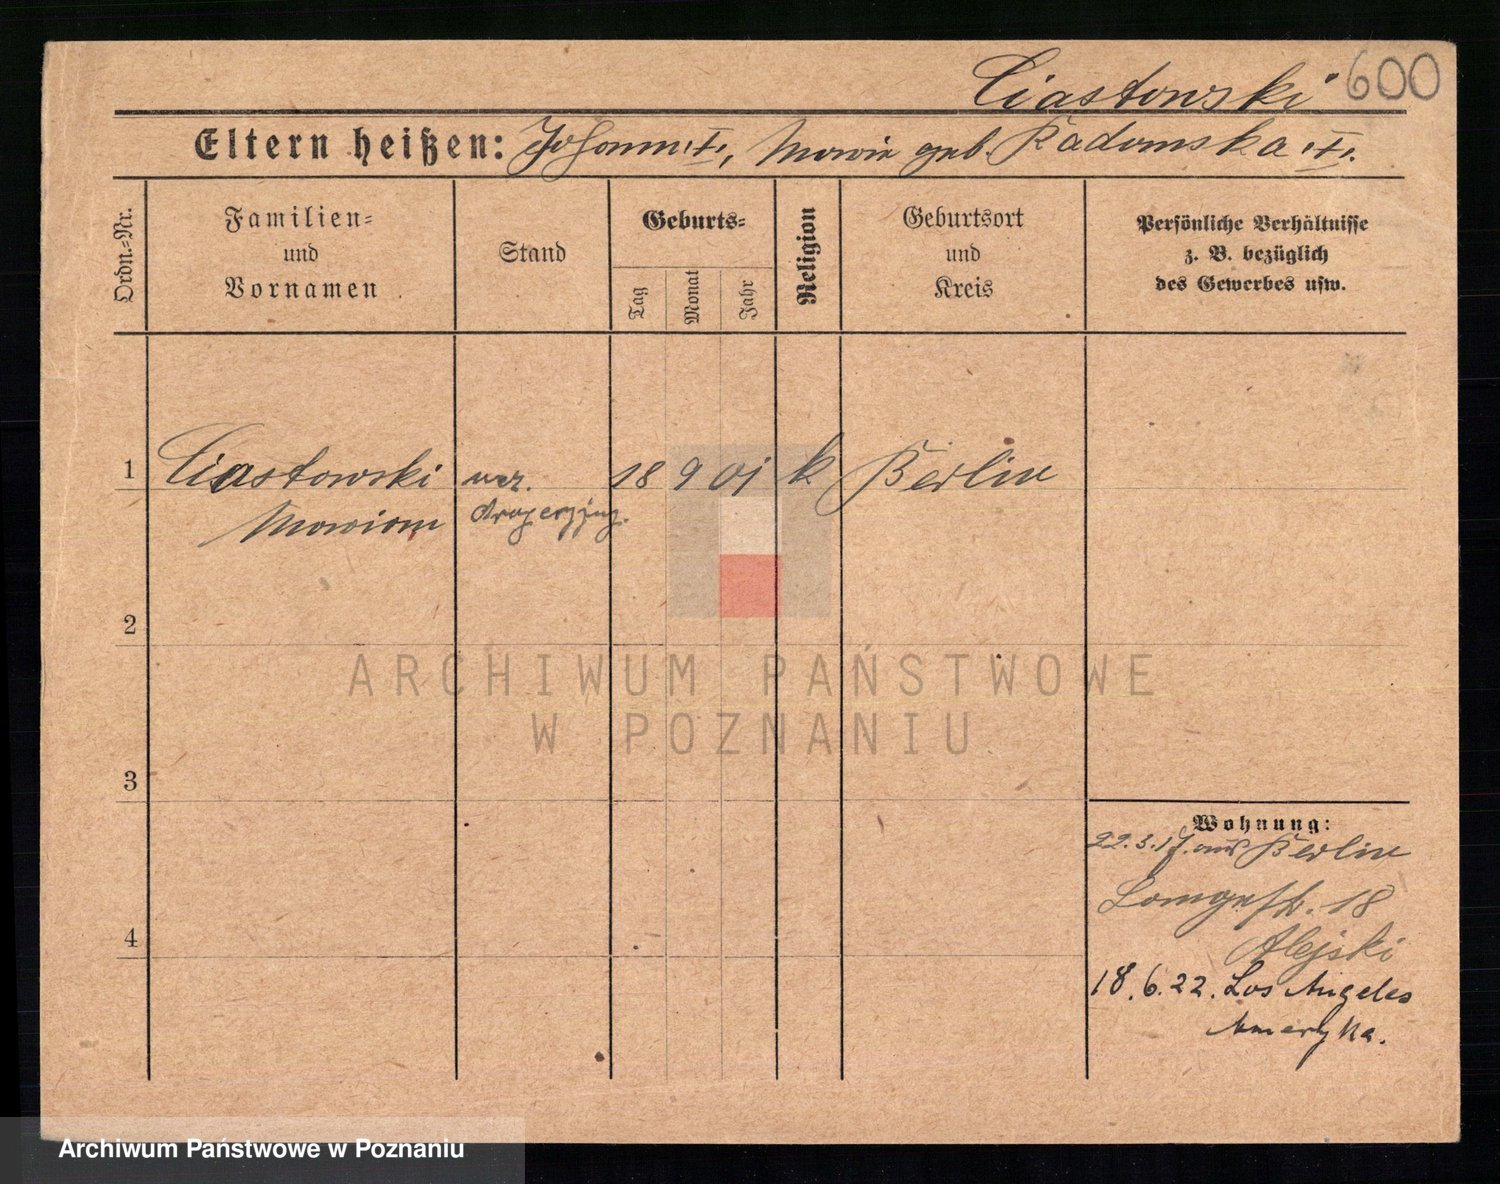 Ciastowski 600
Eltern heißen: Johann †, Marie geb. Radomska †.
Ordn.-Nr.
Familien-
und
Vornamen
Stand
Geburts-
Tag
Monat
Jahr
Religion
Geburtsort
und
Kreis
Persönliche Verhältnisse
z. B. bezüglich
des Gewerbes usw.
1 Ciastowski 18 9 01 k Berlin
Marian
2
3
4
Wohnung:
22.3.17. aus Berlin
Langestr. 18
Alejski
18.6.22. Los Angeles
Ameryka.
ARCHIWUM PAŃSTWOWE
W POZNANIU
Archiwum Państwowe w Poznaniu